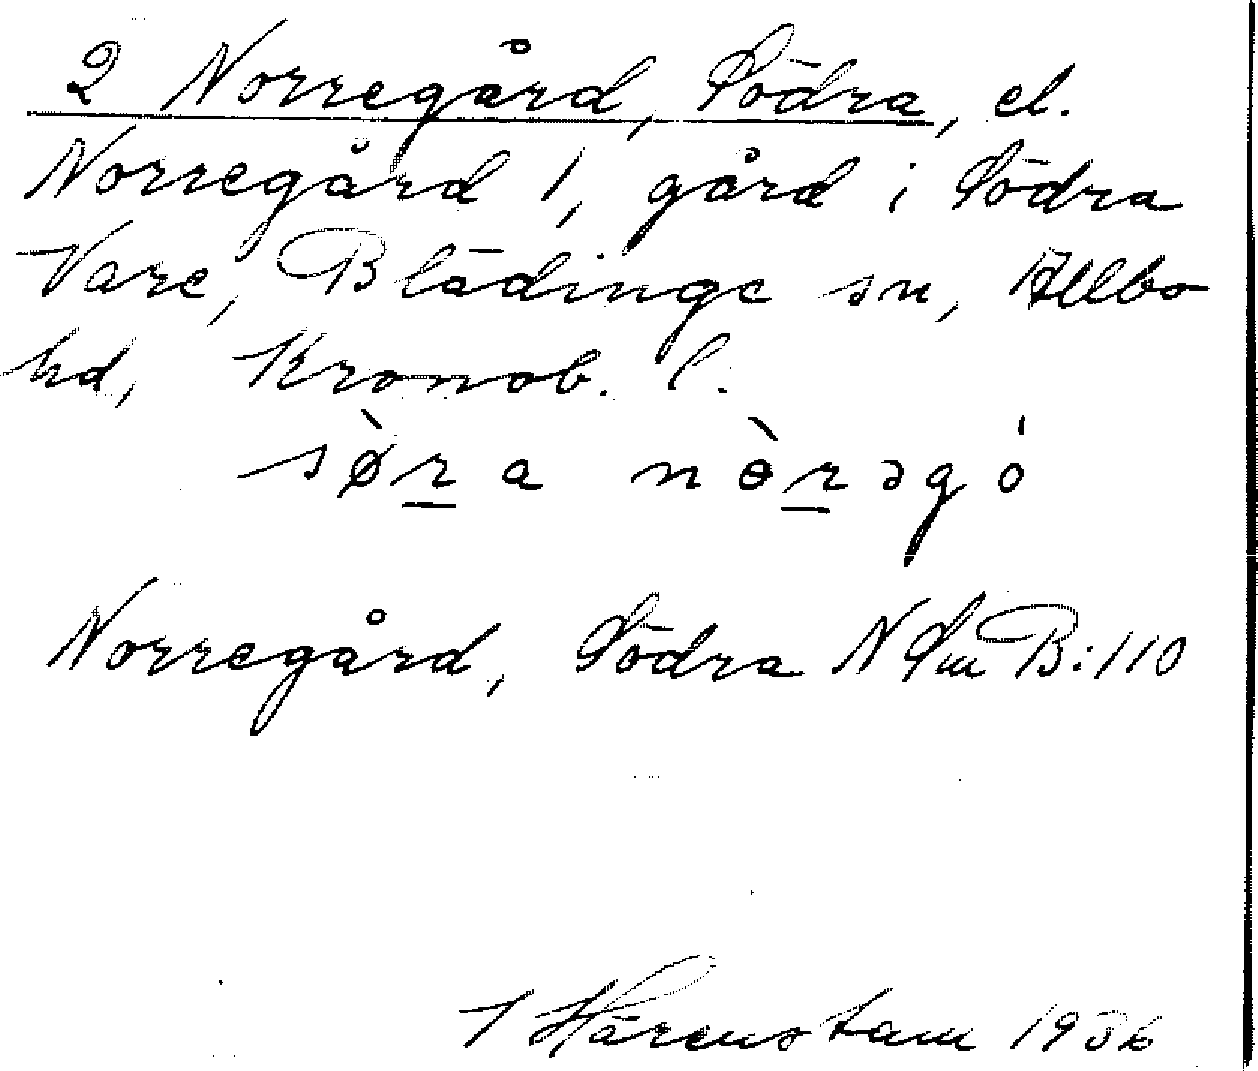 2 Norregård, Södra, el.
Norregård 1, gård i Södra
Vare, Blädinge sn, Allbo
hd, Kronob. l.
sø̀r̲a nɵ̀r̲əgó
Norregård, Södra NSmB:110
Härenstam 1936